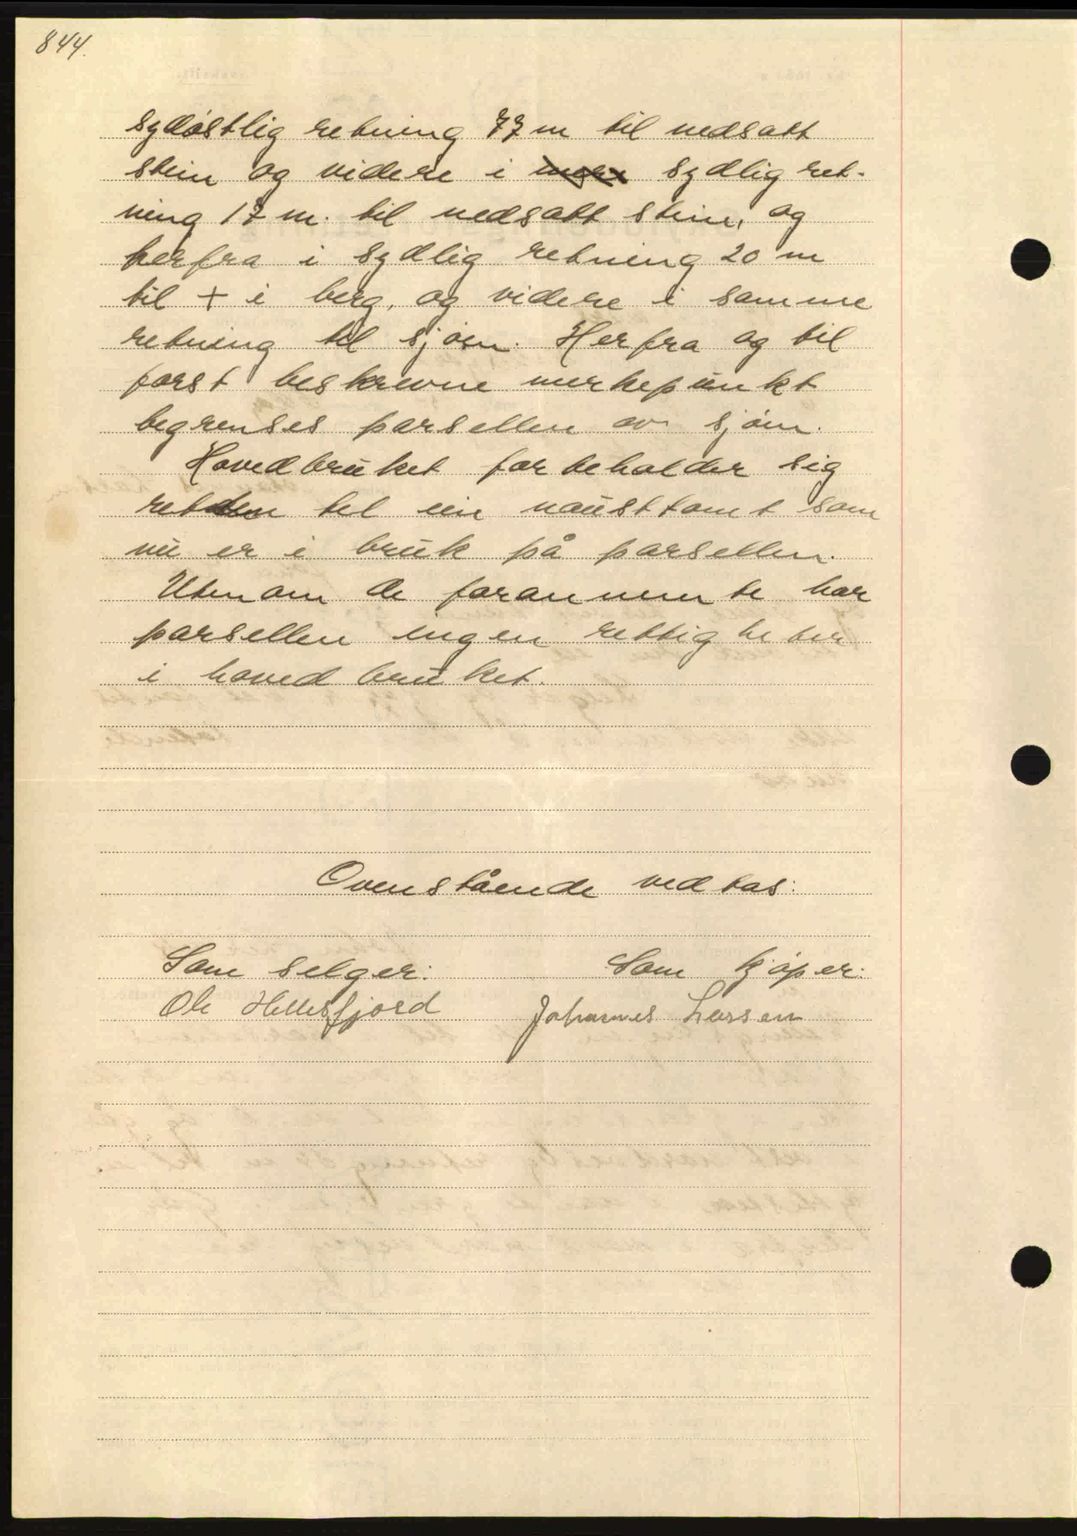 844.
sydøstlig retning 77 m til nedsatt
stein og videre i sydlig ret-
ning 17 m. til nedsatt stein, og
herfra i sydlig retning 20 m
til + i berg, og videre i samme
retning til sjøen. Herfra og til
først beskrevne merkepunkt
begrenses parsellen av sjøen.
Hovedbruket forbeholder sig
retten til ein nausttomt som
nu er i bruk på parsellen.
Utenom de forannemte har
parsellen ingen rettigheter
i hovedbruket.
Ovenstående vedtas:
Som selger: Som kjøper:
Ole Hellesfjord Johannes Larsen